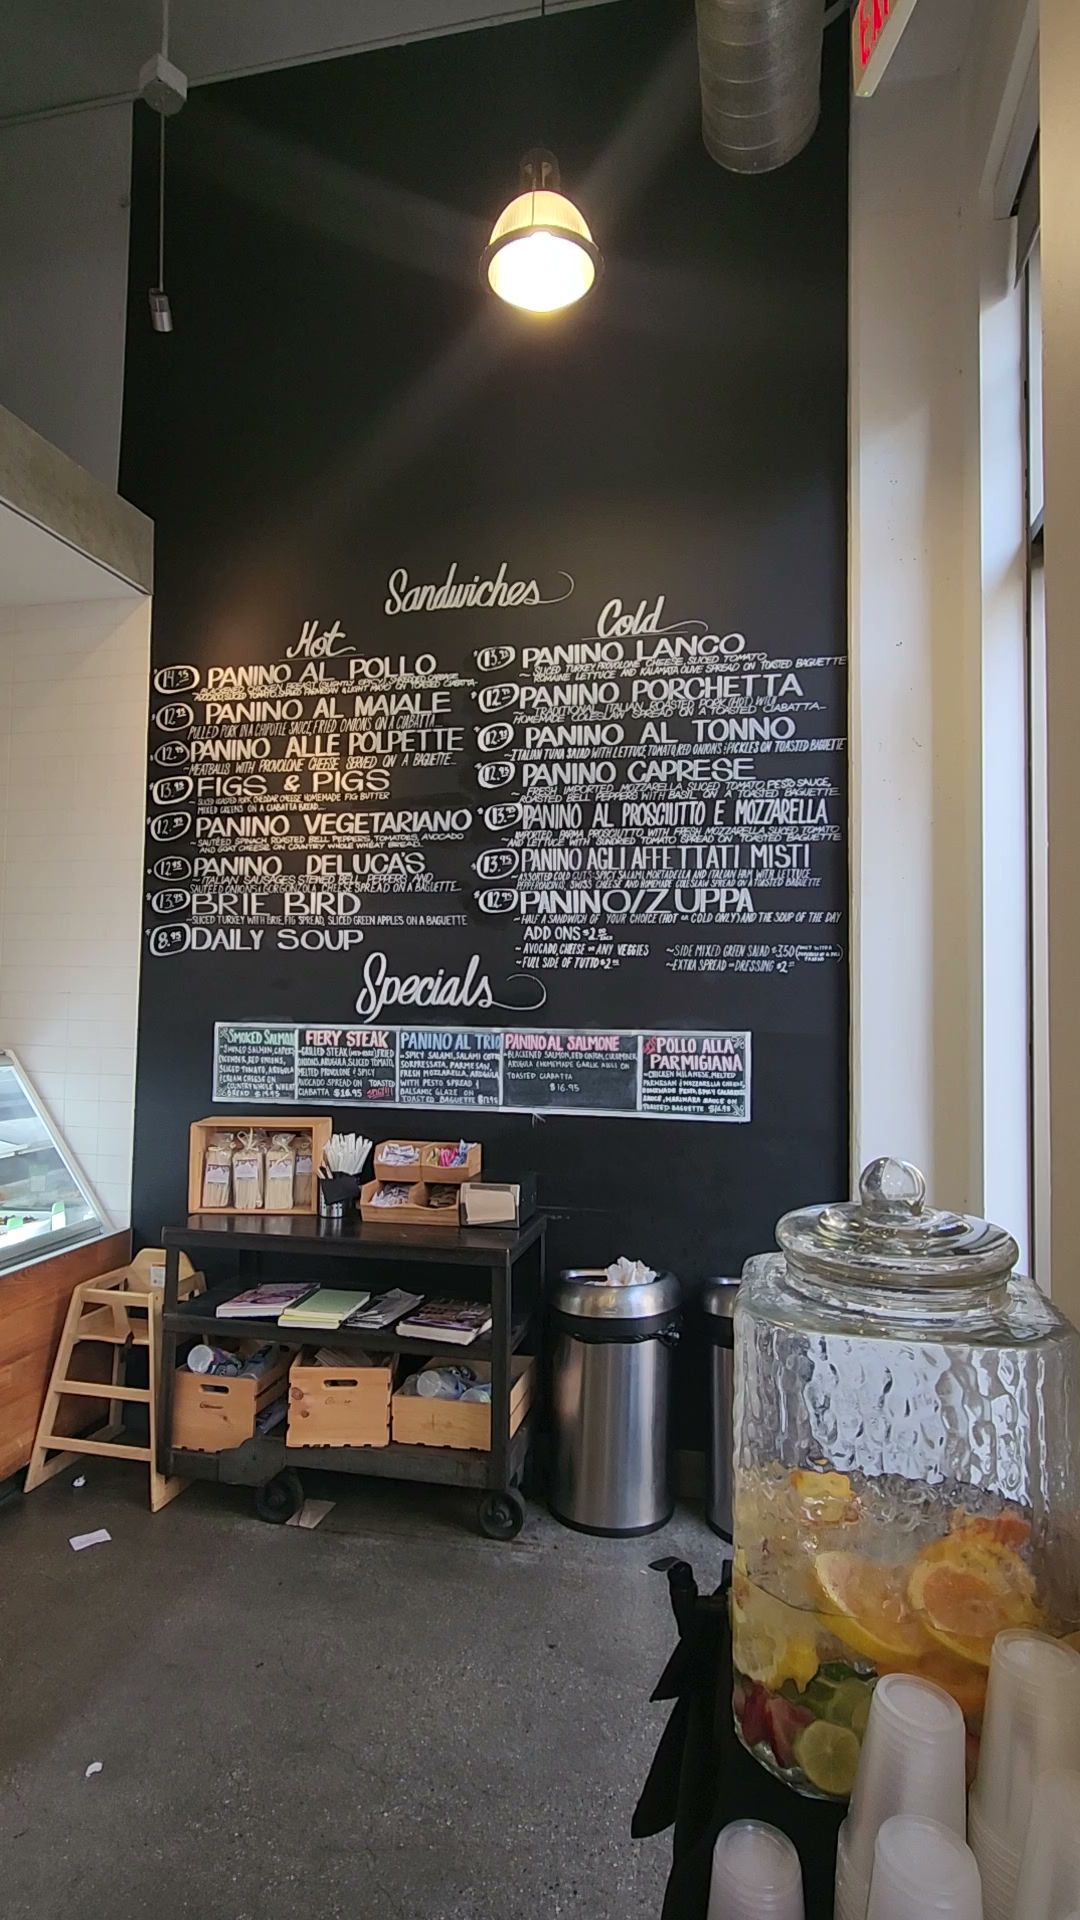 Sandwiches
Hot
14.95 PANINO AL POLLO
SLICED TOMATO, SHAVED PARMESAN & LIGHT MAYO ON TOASTED CIABATTA
12.95 PANINO AL MAIALE
PULLED PORK IN A CHIPOTLE SAUCE, FRIED ONIONS ON A CIABATTA
12.95 PANINO ALLE POLPETTE
~MEATBALLS WITH PROVOLONE CHEESE SERVED ON A BAGUETTE~
13.95 FIGS & PIGS
~SLICED ROASTED PORK, CHEDDAR CHEESE, HOMEMADE FIG BUTTER
MIXED GREENS ON A CIABATTA BREAD~
12.95 PANINO VEGETARIANO
~SAUTÉED SPINACH ROASTED BELL PEPPERS, TOMATOES, AVOCADO
AND GOAT CHEESE ON COUNTRY WHOLE WHEAT BREAD~
12.95 PANINO DELUCA'S
~ITALIAN SAUSAGES STEWED BELL PEPPERS AND
SAUTEED ONIONS & GORGONZOLA CHEESE SPREAD ON A BAGUETTE~
13.95 BRIE BIRD
~SLICED TURKEY WITH BRIE, FIG SPREAD, SLICED GREEN APPLES ON A BAGUETTE
8.95 DAILY SOUP
Cold
PANINO LANCO
~SLICED TURKEY, PROVOLONE CHEESE, SLICED TOMATO,
ROMAINE LETTUCE AND KALAMATA OLIVE SPREAD ON TOASTED BAGUETTE
PANINO PORCHETTA
~TRADITIONAL ITALIAN ROASTED PORK (HOT) WITH
HOMEMADE COLESLAW SPREAD ON A TOASTED CIABATTA~
12.95 PANINO AL TONNO
~ITALIAN TUNA SALAD WITH LETTUCE, TOMATO, RED ONIONS & PICKLES ON TOASTED BAGUETTE
12.95 PANINO CAPRESE
~FRESH IMPORTED MOZZARELLA, SLICED TOMATO, PESTO SAUCE,
ROASTED BELL PEPPERS WITH BASIL ON A TOASTED BAGUETTE
PANINO AL PROSCIUTTO E MOZZARELLA
IMPORTED PARMA PROSCIUTTO WITH FRESH MOZZARELLA SLICED TOMATO
AND LETTUCE WITH SUNDRIED TOMATO SPREAD ON TOASTED BAGUETTE
13.95 PANINO AGLI AFFETTATI MISTI
~ASSORTED COLD CUTS: SPICY SALAMI, MORTADELLA AND ITALIAN HAM WITH LETTUCE
PEPPERONCINI, SWISS CHEESE AND HOMEMADE COLESLAW SPREAD ON A TOASTED BAGUETTE
12.95 PANINO/ZUPPA
~HALF A SANDWICH OF YOUR CHOICE (HOT OR COLD ONLY) AND THE SOUP OF THE DAY
ADD ONS $2.00
~AVOCADO, CHEESE OR ANY VEGGIES
~FULL SIDE OF TUTTO $2.00
~SIDE MIXED GREEN SALAD $3.50
~EXTRA SPREAD OR DRESSING $2.00
Specials
SMOKED SALMON
~SMOKED SALMON, CAPERS
CUCUMBER, RED ONIONS,
SLICED TOMATO, ARUGULA
& CREAM CHEESE ON
COUNTRY WHOLE WHEAT
BREAD
FIERY STEAK
~GRILLED STEAK FRIED
ONIONS, ARUGULA, SLICED TOMATO,
MELTED PROVOLONE & SPICY
AVOCADO SPREAD ON TOASTED
CIABATTA $16.95
PANINO AL TRIO
~SPICY SALAMI, SALAMI COTTO
SOPRESSATA, PARMESAN,
FRESH MOZZARELLA, ARUGULA
WITH PESTO SPREAD &
BALSAMIC GLAZE ON
TOASTED BAGUETTE
PANINO AL SALMONE
~BLACKENED SALMON, RED ONION, CUCUMBER
ARUGULA & HOMEMADE GARLIC AIOLI ON
TOASTED CIABATTA
$16.95
POLLO ALLA
PARMIGIANA
~CHICKEN MILANESE, MELTED
PARMESAN & MOZZARELLA CHEESE,
HOMEMADE PESTO, SPICY CALABRESE
SAUCE, MARINARA SAUCE ON
TOASTED BAGUETTE $16.95